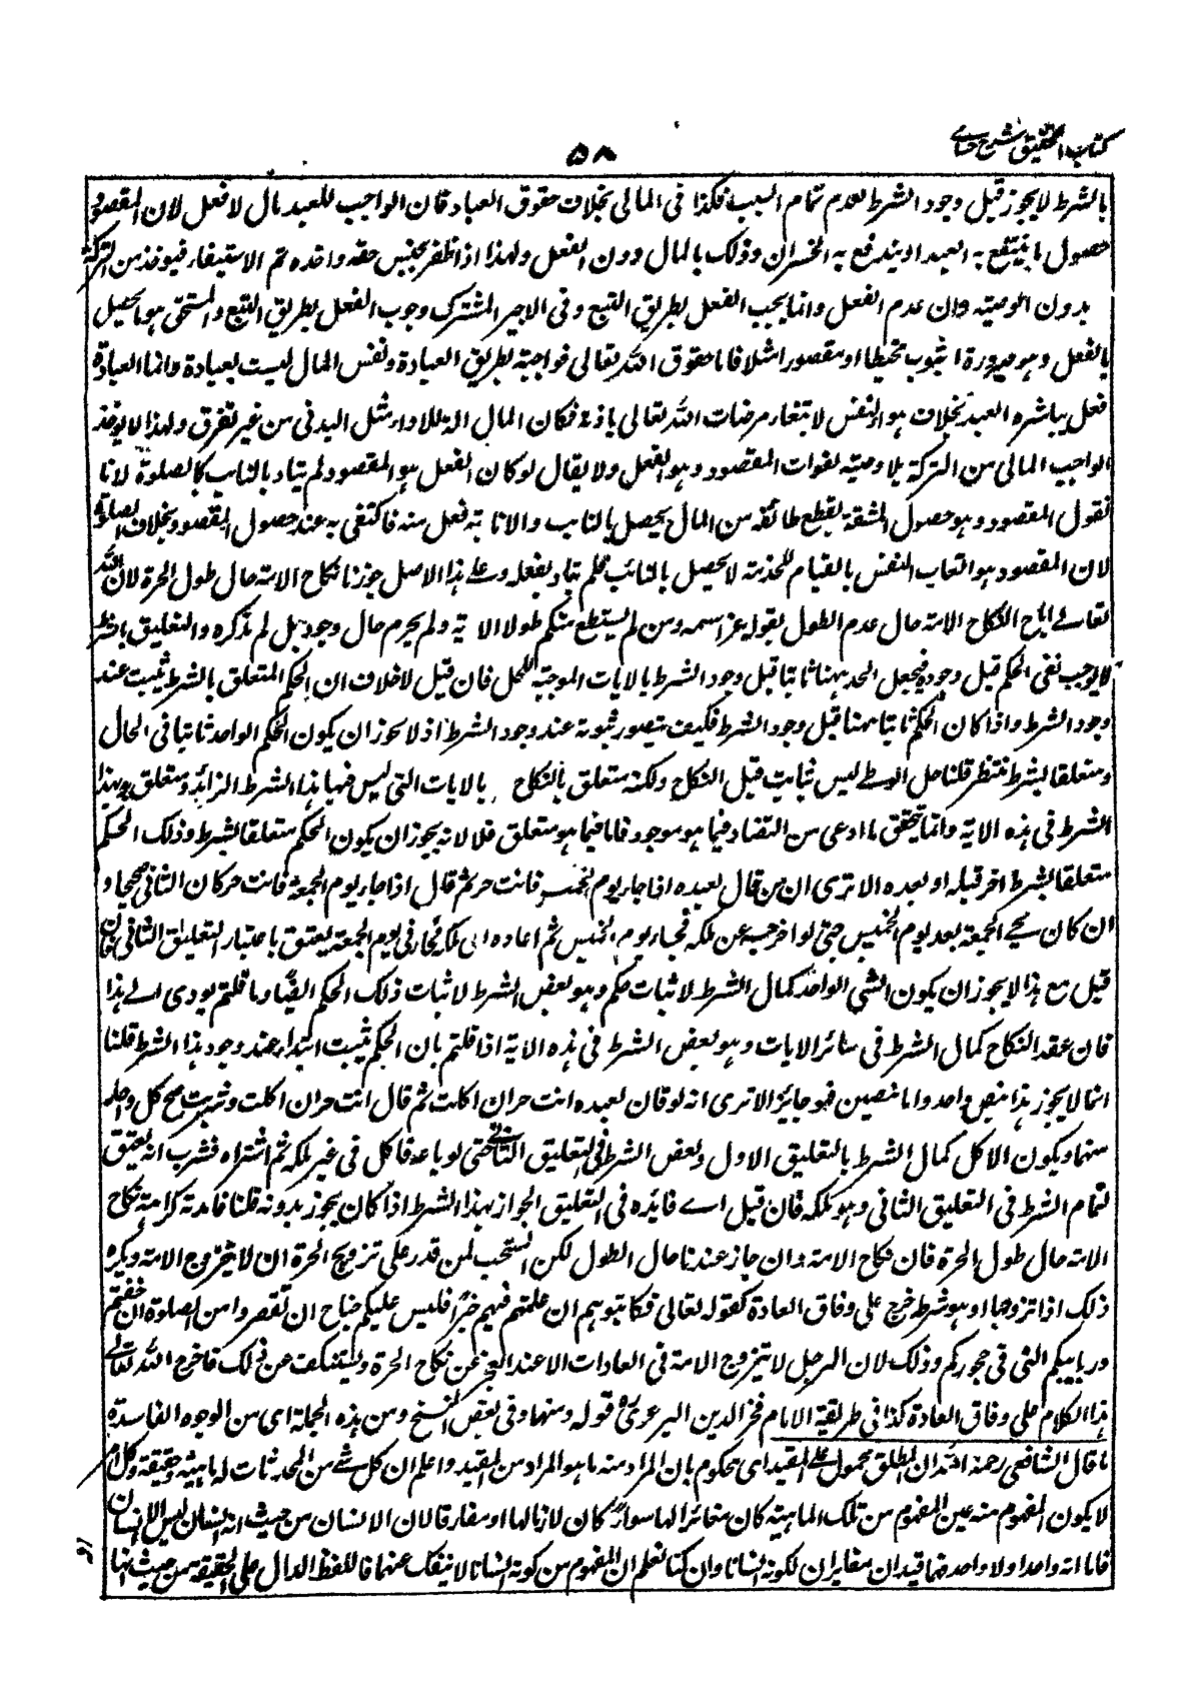 كتاب التحقيق شرح حسامى
٥٨
بالشرط لا يجوز قبل وجود الشرط لعدم تمام السبب فكذا فى المالى بخلاف حقوق العباد فان الواجب للعبد مال لا فعل لان المقصود
حصول ما ينتفع به العبد او يندفع به الخسران وذلك بالمال دون الفعل ولهذا اذا ظفر بجنس حقه واخذه تم الاستيفاء فيوخذ من التركة
بدون الوصية وان عدم الفعل وانما يجب الفعل بطريق التبع وفى الاجير المشترك وجوب الفعل بطريق التبع والمستحق هو ما يحصل
بالفعل وهو صيرورة الثوب مخيطا او مقصورا مثلا فاما حقوق الله تعالى فواجبة بطريق العبادة ونفس المال ليست بعبادة وانما العبادة
فعل يباشره العبد بخلاف هو النفس لابتغاء مرضات الله تعالى باذنه فكان المال الة للاداء مثل البدنى من غير تفرق ولهذا لا يوخذ
الواجب المالى من التركة بلا وصية لفوات المقصود وهو الفعل ولا يقال لو كان الفعل هو المقصود لم يتاد بالنايب كالصلوة لانا
نقول المقصود وهو حصول المشقة بقطع طائفة من المال يحصل بالنايب والانابة فعل منه فاكتفى به عند حصول المقصود بخلاف الصلوة
لان المقصود هو اتعاب النفس بالقيام للخدمة لا يحصل بالنائب فلم يتاد بفعله وعلى هذا الاصل جوزنا نكاح الامة حال طول الحرة لان الله
تعالى اباح النكاح الامة حال عدم الطول بقوله عز اسمه ومن لم يستطع منكم طولا الاية ولم يحرم حال وجوده بل لم يذكره والتعليق بالشرط
لا يوجب نفى الحكم قبل وجوده فيجعل الحد ههنا ثابتا قبل وجود الشرط بالايات الموجبة للحل فان قيل لا خلاف ان الحكم المتعلق بالشرط يثبت عند
وجود الشرط واذا كان الحكم ثابتا ههنا قبل وجود الشرط فكيف يتصور ثبوته عند وجود الشرط اذ لا يجوز ان يكون الحكم الواحد ثابتا فى الحال
ومتعلقا بشرط منتظر قلنا حل الوطى ليس ثابت قبل النكاح ولكنه متعلق بالنكاح بالايات التى ليس فيها هذا الشرط الزائد ومتعلق به وبهذا
الشرط فى هذه الاية وانما يتحقق ما ادعى من التضاد فيما هو موجود فاما فيما هو متعلق فلا لانه يجوز ان يكون الحكم متعلقا بشرط وذلك الحكم
متعلقا بشرط اخر قبله او بعده الا ترى ان من قال لعبده اذا جاء يوم الخميس فانت حر ثم قال اذا جاء يوم الجمعة فانت حر كان الثانى صحيحا و
ان كان مجئ الجمعة بعد يوم الخميس حتى لو اخرجه عن ملكه فجاء يوم الخميس ثم اعاده الى ملكه فجاء فى يوم الجمعة يعتق باعتبار التعليق الثانى فان
قيل مع هذا لا يجوز ان يكون الشئ الواحد كمال الشرط لاثبات حكم وهو بعض الشرط لاثبات ذلك الحكم ايضا وما قلتم يودى الى هذا
فان عقد النكاح كمال الشرط فى سائر الايات وهو بعض الشرط فى هذه الاية اذا قلتم بان الحكم يثبت ابتداء عند وجود هذا الشرط قلنا
انما لا يجوز هذا بنص واحد واما بنصين فهو جايز الا ترى انه لو قال لعبده انت حر ان اكلت ثم قال انت حر ان اكلت وشربت صح كل واحد
منهما ويكون الاكل كمال الشرط بالتعليق الاول وبعض الشرط فى التعليق الثانى حتى لو باعه فاكل فى غير ملكه ثم اشتراه فشرب انه يعتق
لتمام الشرط فى التعليق الثانى وهو ملكه فان قيل اى فايدة فى التعليق الجواز بهذا الشرط اذا كان يجوز بدونه قلنا فايدته كراهة نكاح
الامة حال طول الحرة فان نكاح الامة وان جاز عندنا حال الطول لكن المستحب لمن قدر على تزويج الحرة ان لا يتزوج الامة ويكره
ذلك اذا تزوجها او هو شرط خرج على وفاق العادة كقوله تعالى فكاتبوهم ان علمتم فيهم خيرا فليس عليكم جناح ان تقصروا من الصلوة ان خفتم
وربايبكم التى فى حجوركم وذلك لان الرجل لا يتزوج الامة فى العادات الا عند العجز عن نكاح الحرة ويستنكف عن ذلك فاخرج الله تعالى
هذا الكلام على وفاق العادة كذا فى طريقة الامام فخر الدين البرعوى قوله ومنها وفى بعض النسخ ومن هذه الجملة اى من الوجوه الفاسدة
ما قال الشافعى رحمة الله ان المطلق محمول على المقيد اى محكوم بان المراد منه ما هو المراد من المقيد واعلم ان كل شئ من المحدثات له ماهية وحقيقة وكل امر
لا يكون المفهوم منه عين المفهوم من تلك الماهية كان مغائرا لها سواء كان لازما لها او مفارقا لان الانسان من حيث انه انسان ليس الا الانسان
فاما انه واحد او لا واحد فهما قيدان مغايران لكونه انسانا وان كنا نعلم ان المفهوم من كونه انسانا لا ينفك عنهما فاللفظ الدال على الحقيقة من حيث انها